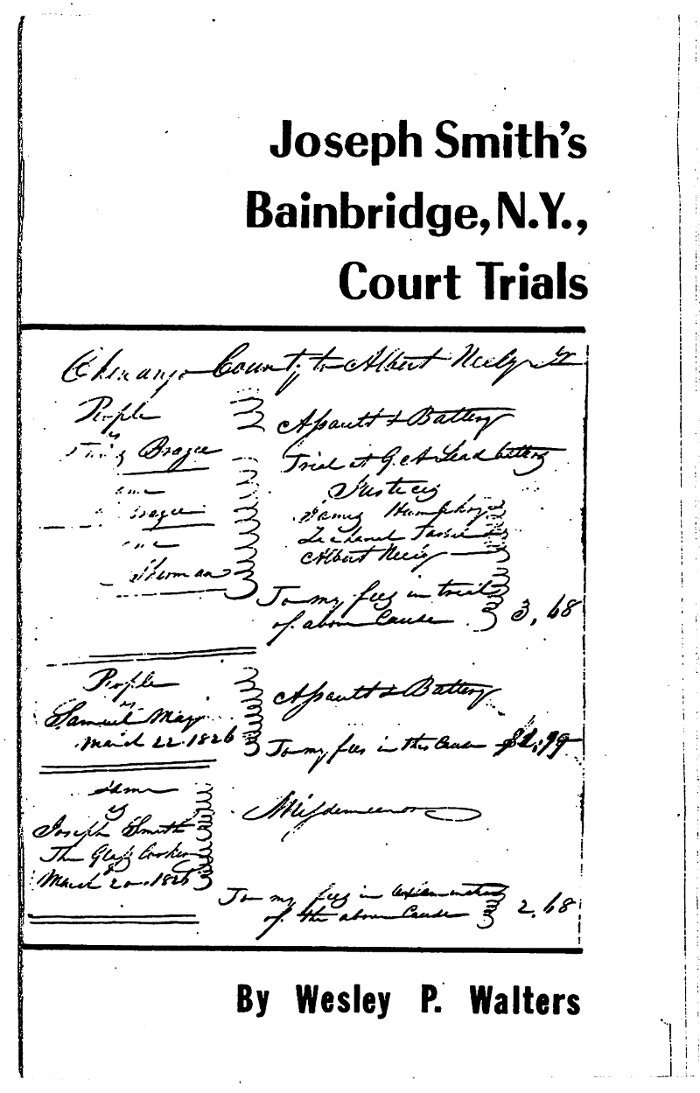 Joseph Smith's
Bainbridge, N.Y.,
Court Trials
Chenango County to Albert Neely Dr
People
vs
Brazee
Assault & Battery
Trial at G. A. Leadbetters
Justices
James Humphrey
Zechariah Tarble
Albert Neely
Same
Brazee
Sherman
To my fees in trial
of above Cause 3,68
People
vs
Samuel May
March 22. 1826
Assault & Battery
To my fees in this Cause $1.99
Same
vs
Joseph Smith
The Glass Looker
March 20. 1826
Misdemeanor
To my fees in examination
of the above Cause 2.68
By Wesley P. Walters